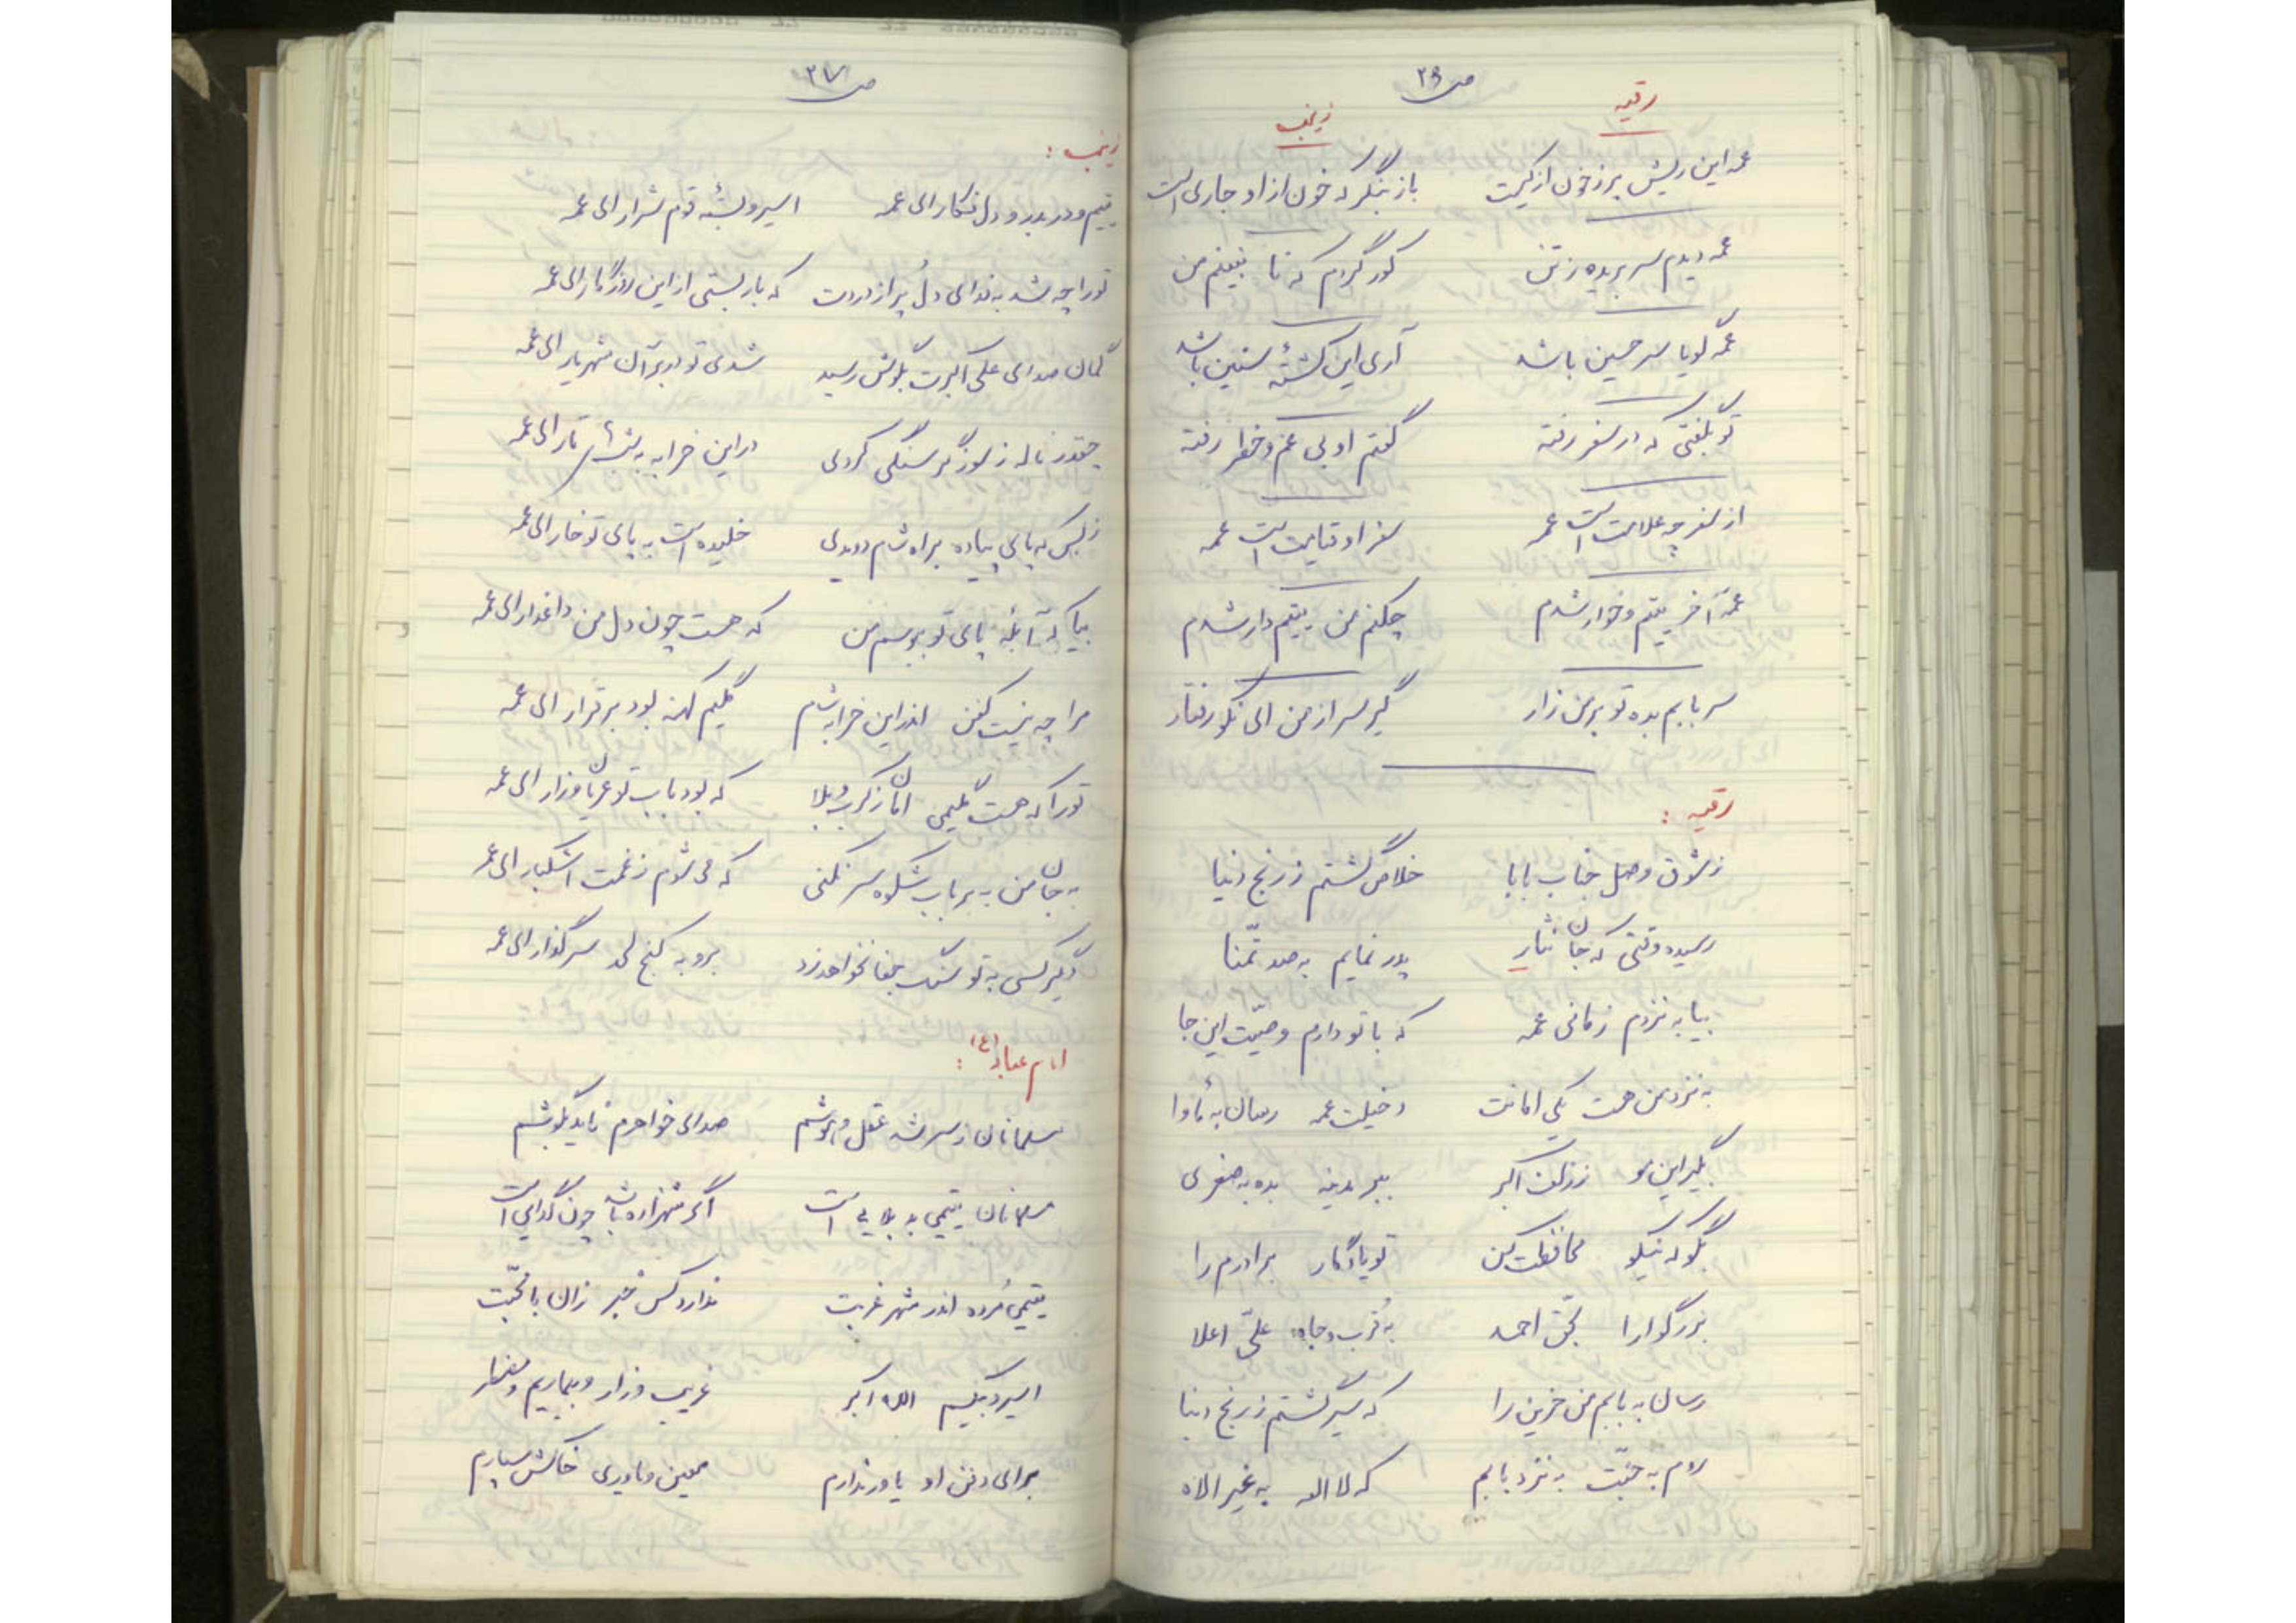 ص ۳۶
رقیه
زینب
عمه این ریش پر ز خون از کیست باز بنگر که خون از او جاری است
عمه دیدم سر بریده ز تن کور گردم که تا نبینم من
عمه گویا سر حسین باشد آری این کشتهٔ سنین باشد
تو بگفتی که در سفر رفته گفتم او بی غم و خطر رفته
از سفر چه علامت است عمه سفر او قیامت است عمه
عمه آخر یتیم و خوار شدم چکنم من یتیم دار شدم
سر بابم بده تو بر من زار گیر سر از من ای نکو رفتار
رقیه :
ز شوق وصل جناب بابا خلاص گشتم ز رنج دنیا
رسیده وقتی که جان نثار پدر نمایم به صد تمنّا
بیا به نزدم زمانی عمه که با تو دارم وصیّت این جا
به نزد من هست یکی امانت دخیلت عمه رسان به مأوا
بگیر این مو ز زلف اکبر ببر مدینه بده به صغری
بگو که نیکو محافظت کن تو یادگار برادرم را
بزرگوارا بحقّ احمد به قُرب و جاه علیّ اعلا
رسان به بابم من حزین را که سیر گشتم ز رنج دنیا
روم به جنّت به نزد بابم که لا اله به غیر الاه
ص ۳۷
زینب :
یتیم و در بدر و دل فکار ای عمه اسیر و بستهٔ قوم شرار ای عمه
تو را چه شد به فدای دلُ پر از دردت که بار بستی از این روزگار ای عمه
گمان صدای علی اکبرت بگوش رسید شدی تو در برِ آن شهریار ای عمه
چقدر ناله ز سوز گرسنگی کردی در این خرابه به شام تار ای عمه
ز بس که پای پیاده براه شام دویدی خلیده است به پای تو خار ای عمه
بیا که آبلهٔ پای تو ببوسم من که هست چون دل من داغدار ای عمه
مرا چه نیست کفن اندر این خرابه شام گلیم کهنه بود برقرار ای عمه
تو را که هست گلیمی امان ز کرب و بلا که بود باب تو عریان و زار ای عمه
به جان من به بر باب شکوه سر نکنی که می شوم ز غمت اشکبار ای عمه
دگر کسی به تو سنگ جفا نخواهد زد برو به کنج لحد سر گذار ای عمه
امام عباد (ع) :
مسلمانان ز سر شد عقل و هوشم صدای خواهرم ناید بگوشم
مسلمانان یتیمی بد بلایی است اگر شهزاده باشد چون گدایی است
یتیمی مُرده اندر شهر غربت ندارد کس خبر زان با محبّت
اسیر و بیکسیم الله اکبر غریب و زار و بیماریم و مضطر
برای دفن او یاور ندارم معین و یاوری خاکش سپارم